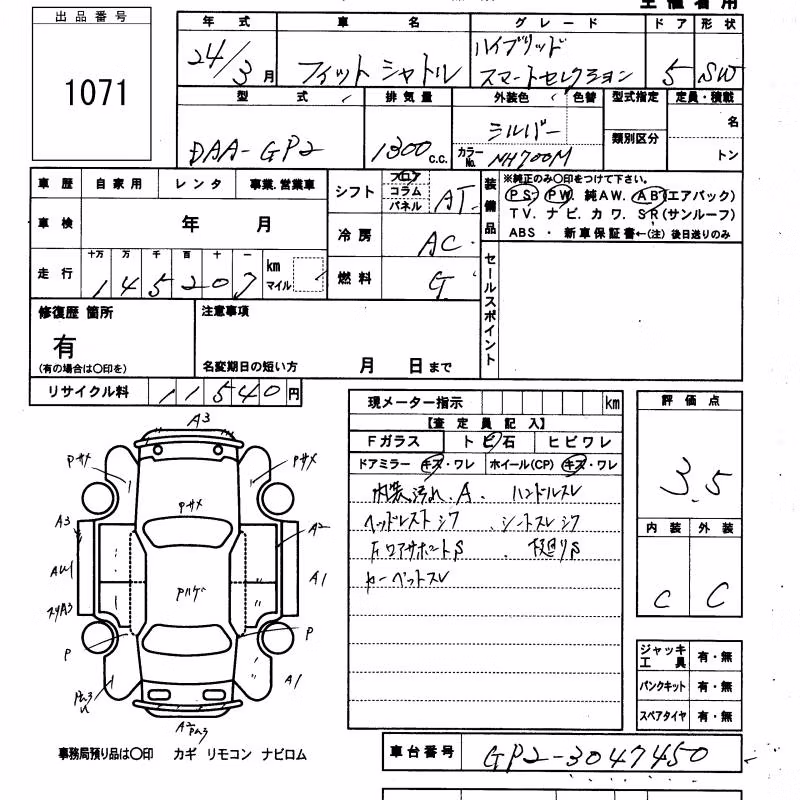 出品番号
1071
年式 車名 グレード ドア 形状
24/3月 フィットシャトル ハイブリッド スマートセレクション 5 SW
型式 排気量 外装色 色替 型式指定 定員・積載
DAA-GP2 1300c.c. シルバー
カラーNo. NH700M 類別区分
名
トン
車歴 自家用 レンタ 事業.営業車
シフト フロア コラム パネル AT
装備品 ※純正のみ○印をつけて下さい。
PS. PW. 純AW. AB(エアバック)
TV. ナビ. カワ. SR(サンルーフ)
ABS ・ 新車保証書←(注) 後日送りのみ
車検 年 月
冷房 AC
走行 十万 万 千 百 十 一 km マイル
145207
燃料 G
セールスポイント
修復歴 箇所
有
(有の場合は○印を)
注意事項
名変期日の短い方 月 日まで
リサイクル料 11540円
現メーター指示 km
【査定員記入】
Fガラス トビ石 ヒビワレ
ドアミラー キズ・ワレ ホイール(CP) キズ・ワレ
内装汚れ.A. ハンドルスレ
ヘッドレストシワ . シートスレシワ
カーペットスレ
評価点
3.5
内装 外装
C C
A3
Pサメ
Pサメ
Pサメ
A3
A2
Pハゲ
A1
P
P
A1
ジャッキ工具 有・無
パンクキット 有・無
スペアタイヤ 有・無
事務局預り品は○印 カギ リモコン ナビロム
車台番号 GP2-3047450